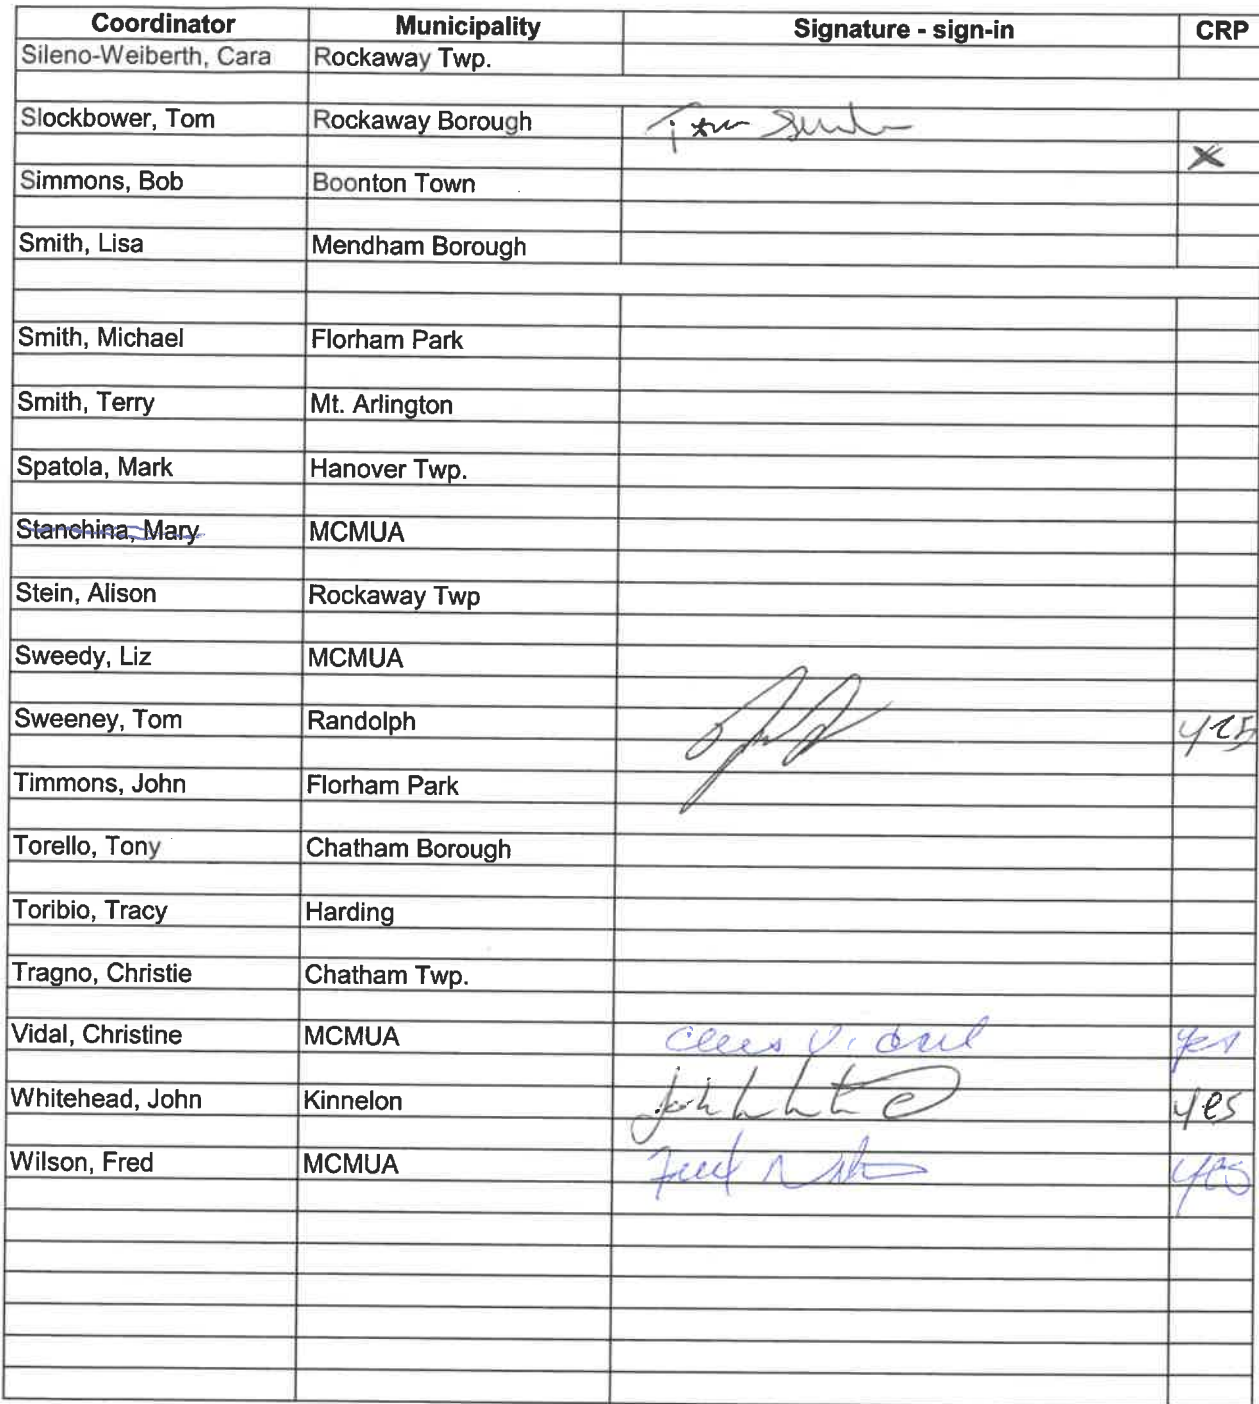 Coordinator Municipality Signature - sign-in CRP
Sileno-Weiberth, Cara Rockaway Twp.
Slockbower, Tom Rockaway Borough Tom
X
Simmons, Bob Boonton Town
Smith, Lisa Mendham Borough
Smith, Michael Florham Park
Smith, Terry Mt. Arlington
Spatola, Mark Hanover Twp.
Stanchina, Mary MCMUA
Stein, Alison Rockaway Twp
Sweedy, Liz MCMUA
Sweeney, Tom Randolph yes
Timmons, John Florham Park
Torello, Tony Chatham Borough
Toribio, Tracy Harding
Tragno, Christie Chatham Twp.
Vidal, Christine MCMUA Chris Vidal yes
Whitehead, John Kinnelon John yes
Wilson, Fred MCMUA Fred Wilson yes